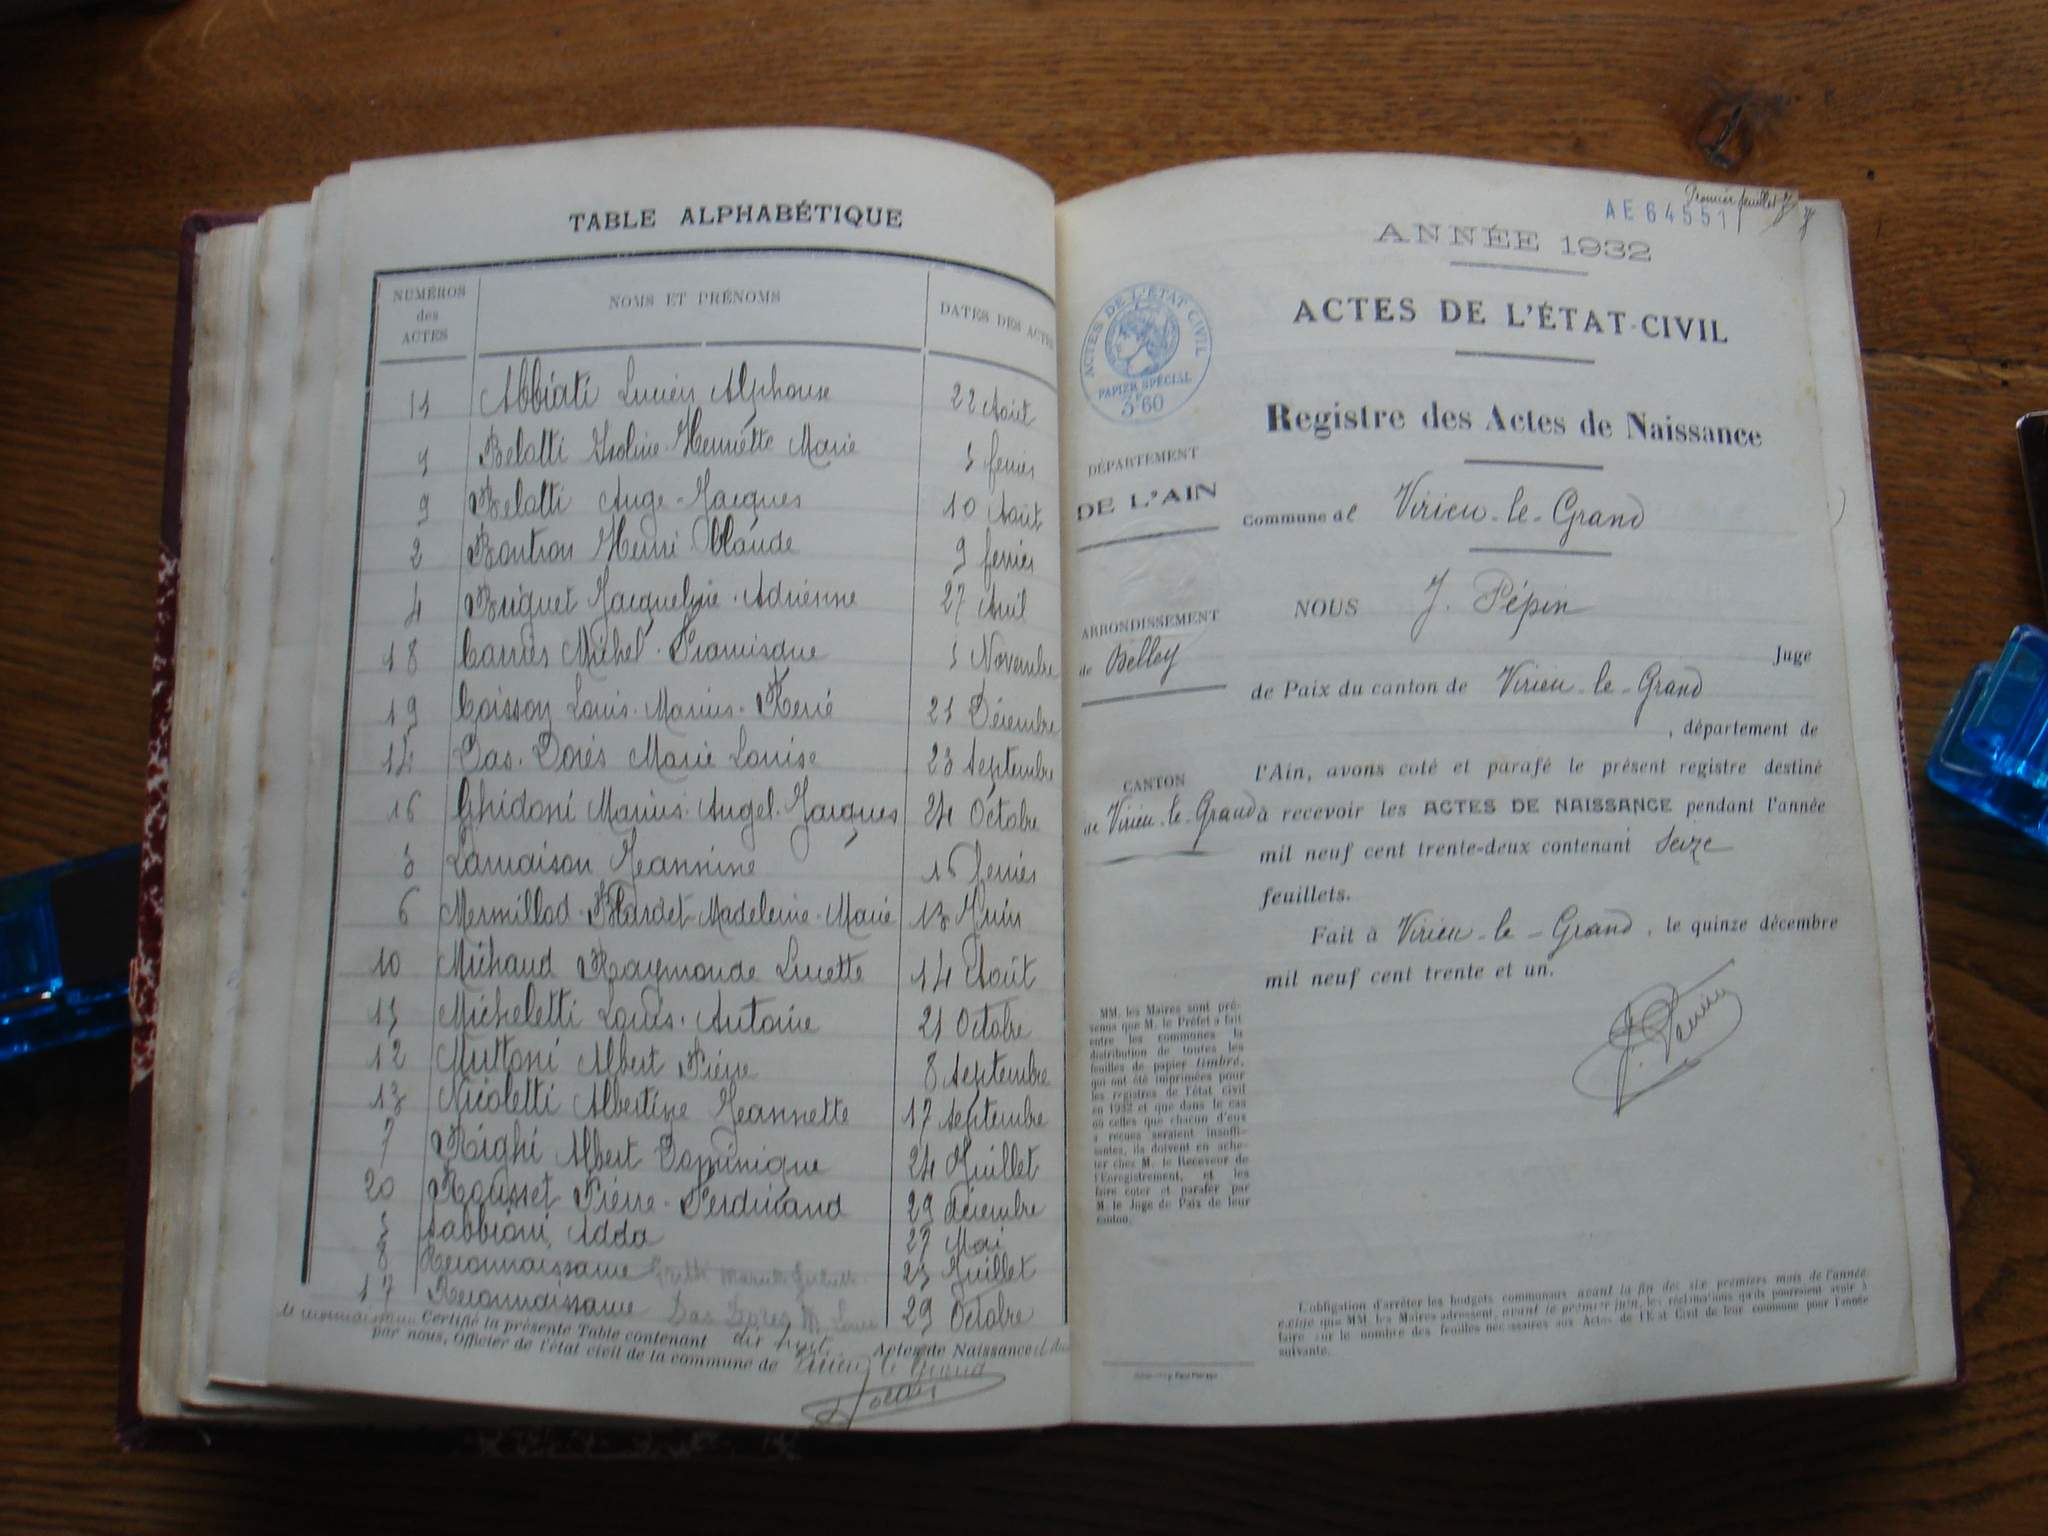 TABLE ALPHABÉTIQUE
NUMÉROS
des
ACTES
NOMS ET PRÉNOMS
DATES DES ACTES
11 Abbiati Lucien Alphonse 22 Août
Belotti Isoline Henriette Marie février
9 Belotti Ange-Jacques 10 Août
2 Boutron Henri Claude 9 février
4 Briquet Jacqueline-Adrienne 27 Avril
18 Michel 1 Novembre
19 Coisson Louis-Marius-René 21 Décembre
14 Das-Dorès Marie Louise 23 Septembre
16 Ghidoni Marius-Angel-Jacques 24 Octobre
3 Lamaison Jeannine 16 février
6 Mermillod-Blardet Madeleine-Marie 13 Juin
10 Michaud Raymonde Lucette 14 Août
15 Micheletti Louis-Antoine 21 Octobre
12 Muttoni Albert Pierre 8 Septembre
13 Nicoletti Albertine Jeannette 17 Septembre
7 Righi Albert Dominique 24 Juillet
20 Rousset Pierre-Ferdinand 29 décembre
5 Sabbioni Adda 27 Mai
8 Reconnaissance Juillet
17 Reconnaissance Das Dores M. Louise 29 Octobre
Certifié la présente Table contenant dix huit Actes de Naissance
par nous, Officier de l'état civil de la commune de Virieu le Grand
Premier feuillet
AE 64551
ANNÉE 1932
ACTES DE L'ÉTAT-CIVIL
Registre des Actes de Naissance
ACTES DE L'ÉTAT CIVIL
PAPIER SPÉCIAL
3F60
DÉPARTEMENT
DE L'AIN
Commune de Virieu-le-Grand
ARRONDISSEMENT
de Belley
NOUS J. Pépin
Juge
de Paix du canton de Virieu-le-Grand
, département de
CANTON
de Virieu-le-Grand
l'Ain, avons coté et parafé le présent registre destiné
à recevoir les ACTES DE NAISSANCE pendant l'année
mil neuf cent trente-deux contenant seize
feuillets.
Fait à Virieu-le-Grand, le quinze décembre
mil neuf cent trente et un.
MM. les Maires sont pré-
venus que M. le Préfet a fait
entre les communes la
distribution de toutes les
feuilles de papier timbré,
qui ont été imprimées pour
les registres de l'état civil
en 1932 et que dans le cas
où celles que chacun d'eux
a reçues seraient insuffi-
santes, ils doivent en ache-
ter chez M. le Receveur de
l'Enregistrement, et les
faire coter et parafer par
M. le Juge de Paix de leur
canton.
L'obligation d'arrêter les budgets communaux avant la fin des six premiers mois de l'année
exige que MM. les Maires adressent, avant le premier juin, les réclamations qu'ils pourraient avoir à
faire sur le nombre des feuilles nécessaires aux Actes de l'État Civil de leur commune pour l'année
suivante.